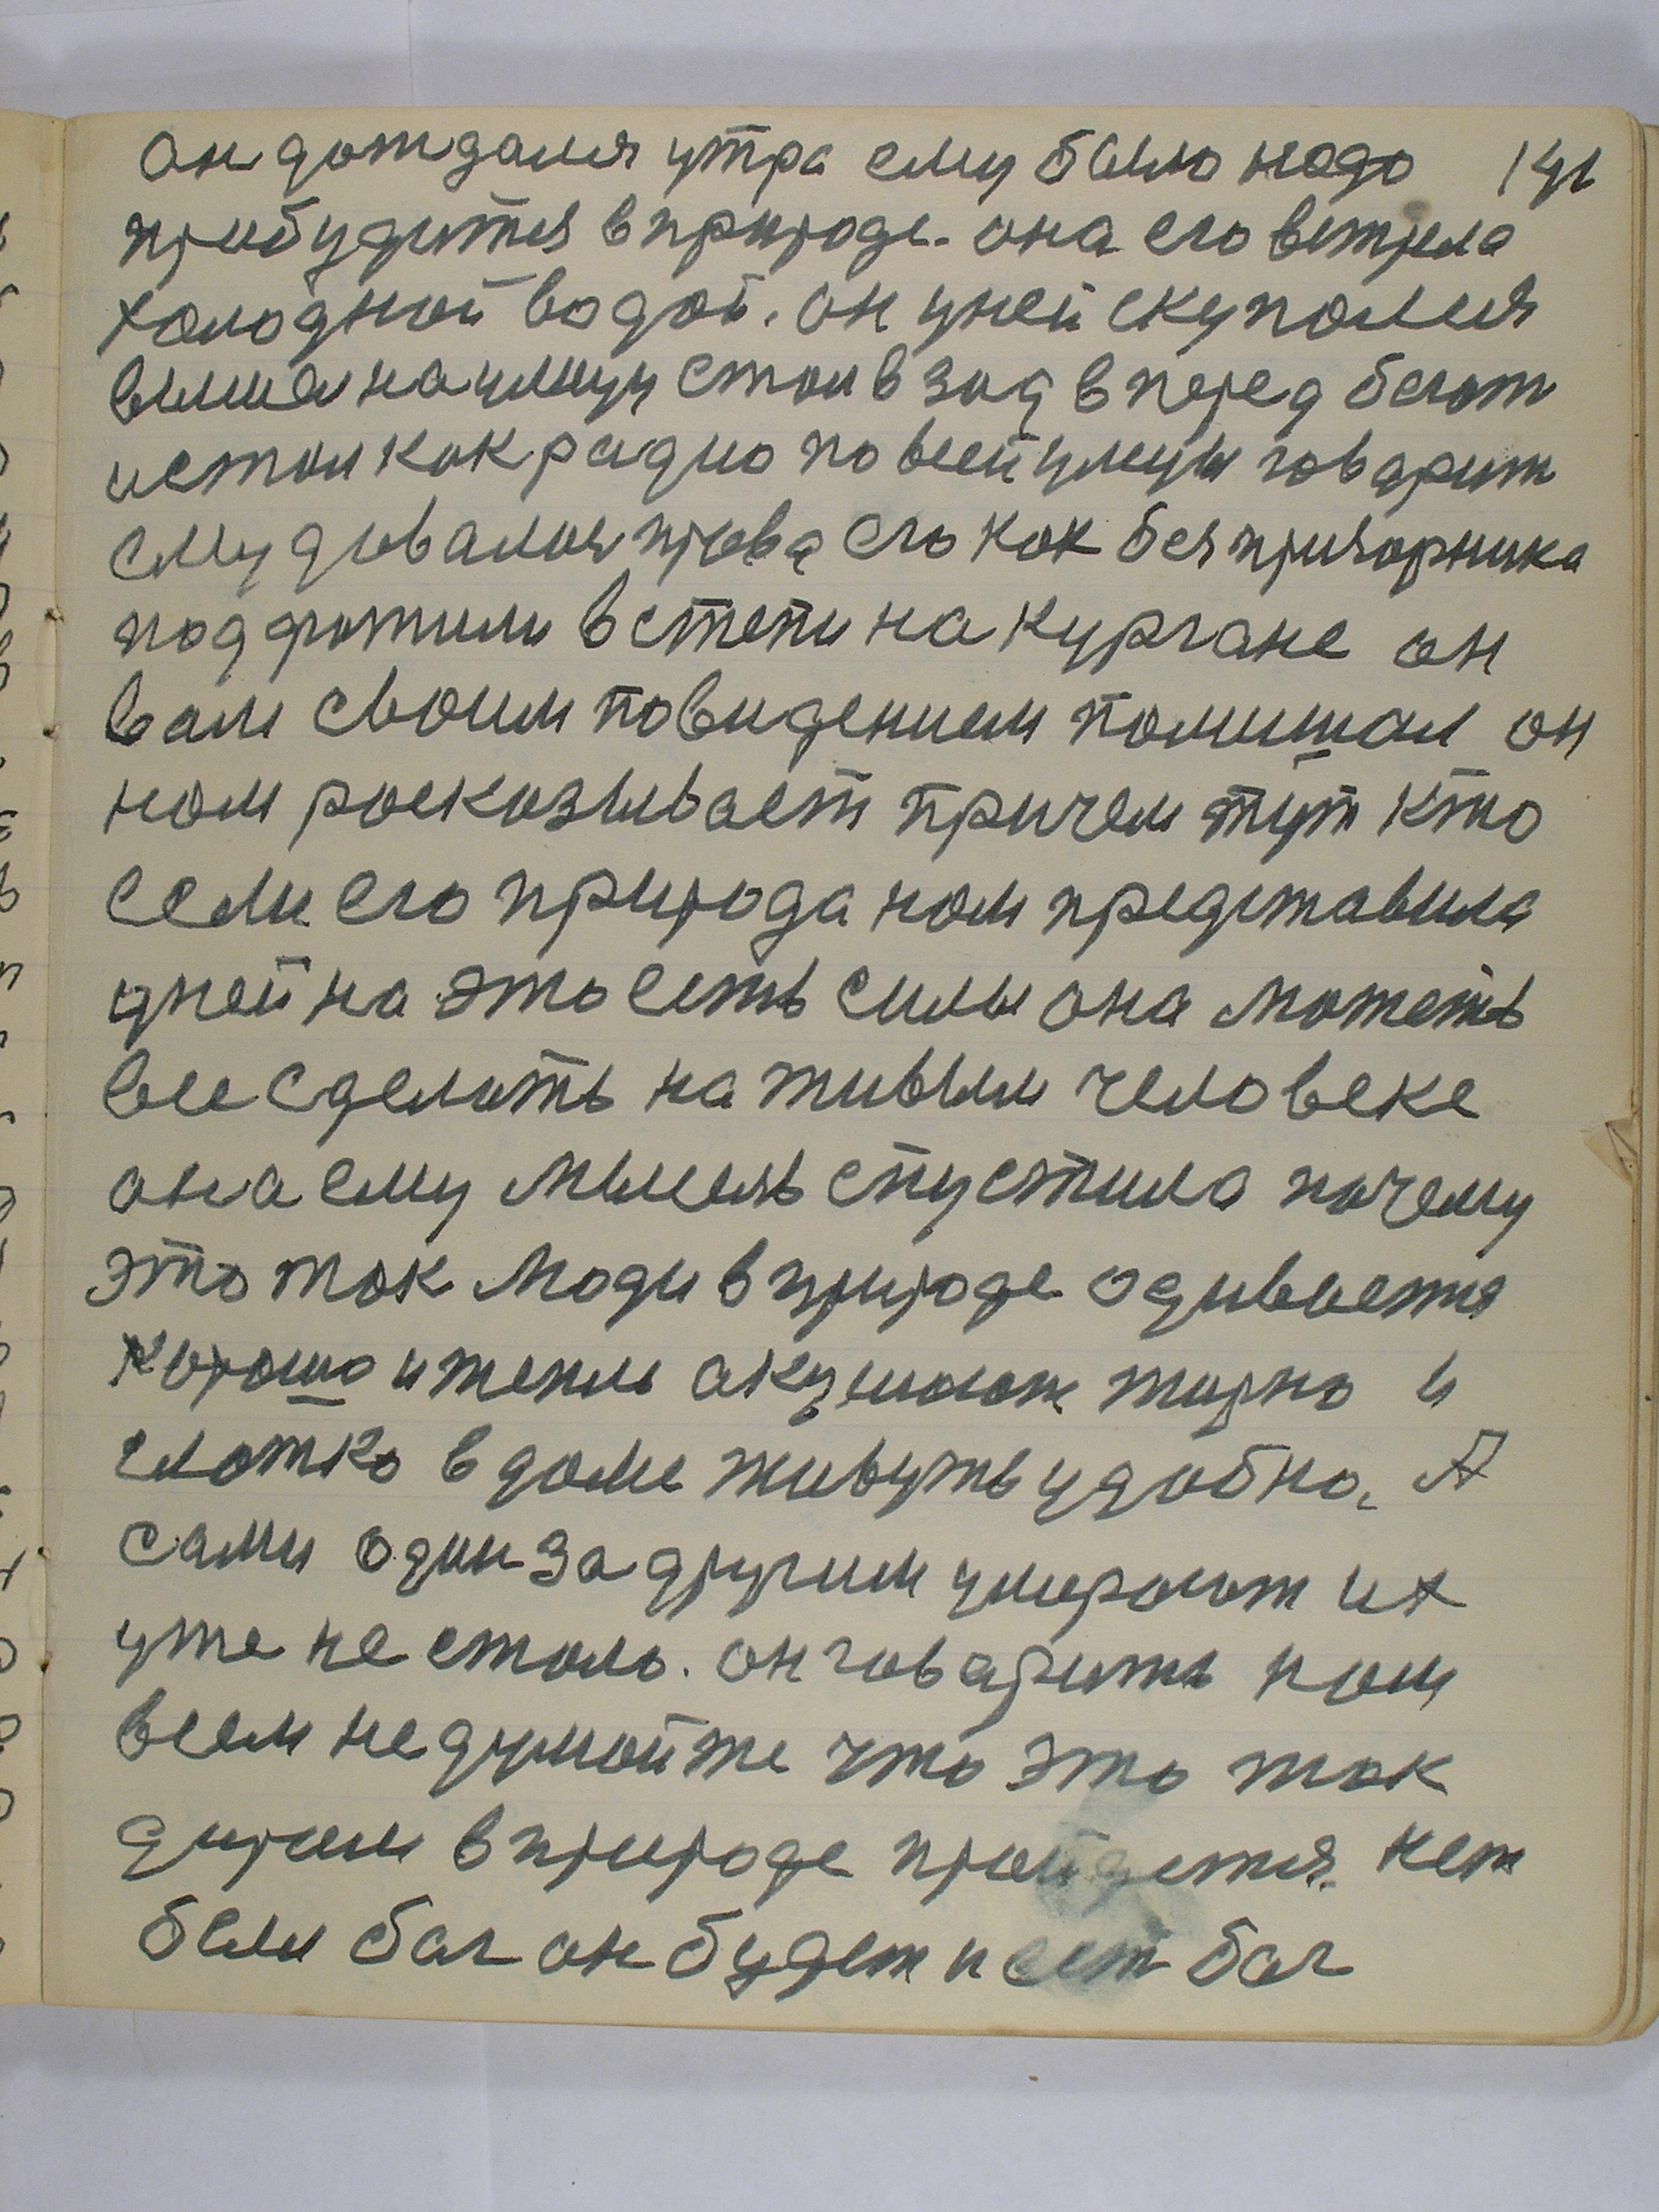 он дождался утра ему было надо 141
прабудится в природе. она его встрела
холодной водой. он уней скупался
вышел на улицу стал взад вперед бегат
и стал как радио по всей улицы говарит
ему дивалися его как беспризорника
поддражили в степи на кургане он
вам своим повидением помишал он
нам росказывает причем тут кто
если его природа нам представила
уней на это есть силы она можеть
все сделать на живым человеке
она ему мысль спустила почему
это так люди в природе одиваются
хорошо и тепло а кушают жирно и
слотко в доме живуть удобно. А
сами один за другим умерают их
уже не стало. он говарить нам
всем не думайте что это так
даром в природе пройдется. нет
были бог он будет и ест бог